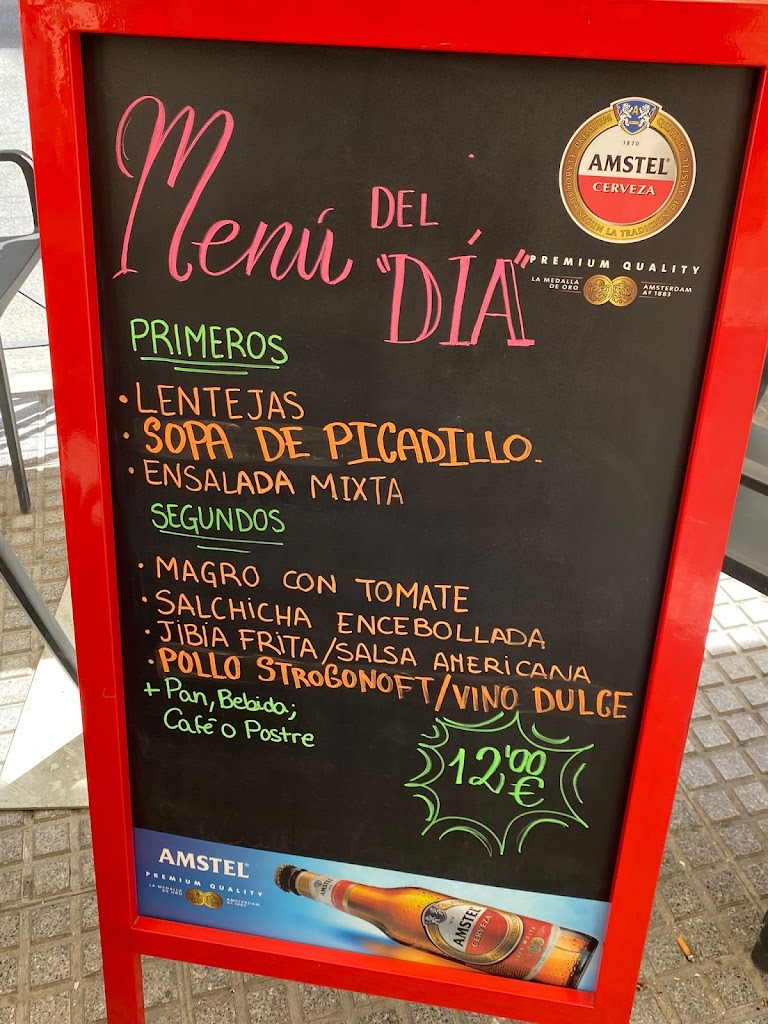 Menú DEL "DÍA"
PREMIUM QUALITY
1870
AMSTEL
CERVEZA
PREMIUM QUALITY
LA MEDALLA DE ORO
AMSTERDAM Aº 1883
PRIMEROS
· LENTEJAS
· SOPA DE PICADILLO.
· ENSALADA MIXTA
SEGUNDOS
· MAGRO CON TOMATE
· SALCHICHA ENCEBOLLADA
· JIBIA FRITA/SALSA AMERICANA
· POLLO STROGONOFT/VINO DULCE
+ Pan, Bebida;
Café o Postre
12'00 €
AMSTEL
PREMIUM QUALITY
LA MEDALLA DE ORO
AMSTERDAM Aº 1883
AMSTEL
AMSTEL
CERVEZA